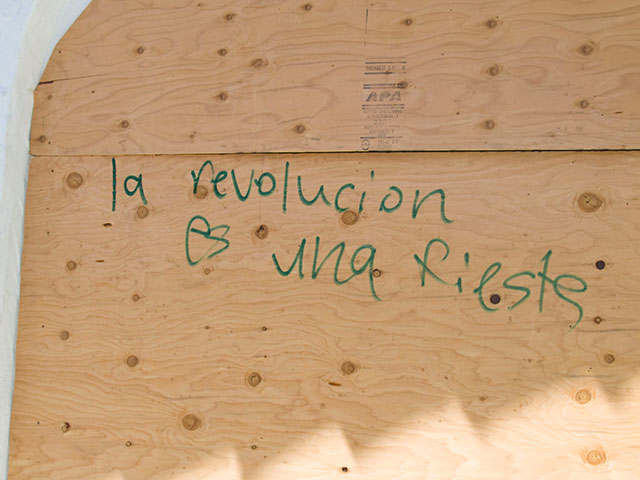 APA
la revolucion
es una fiesta